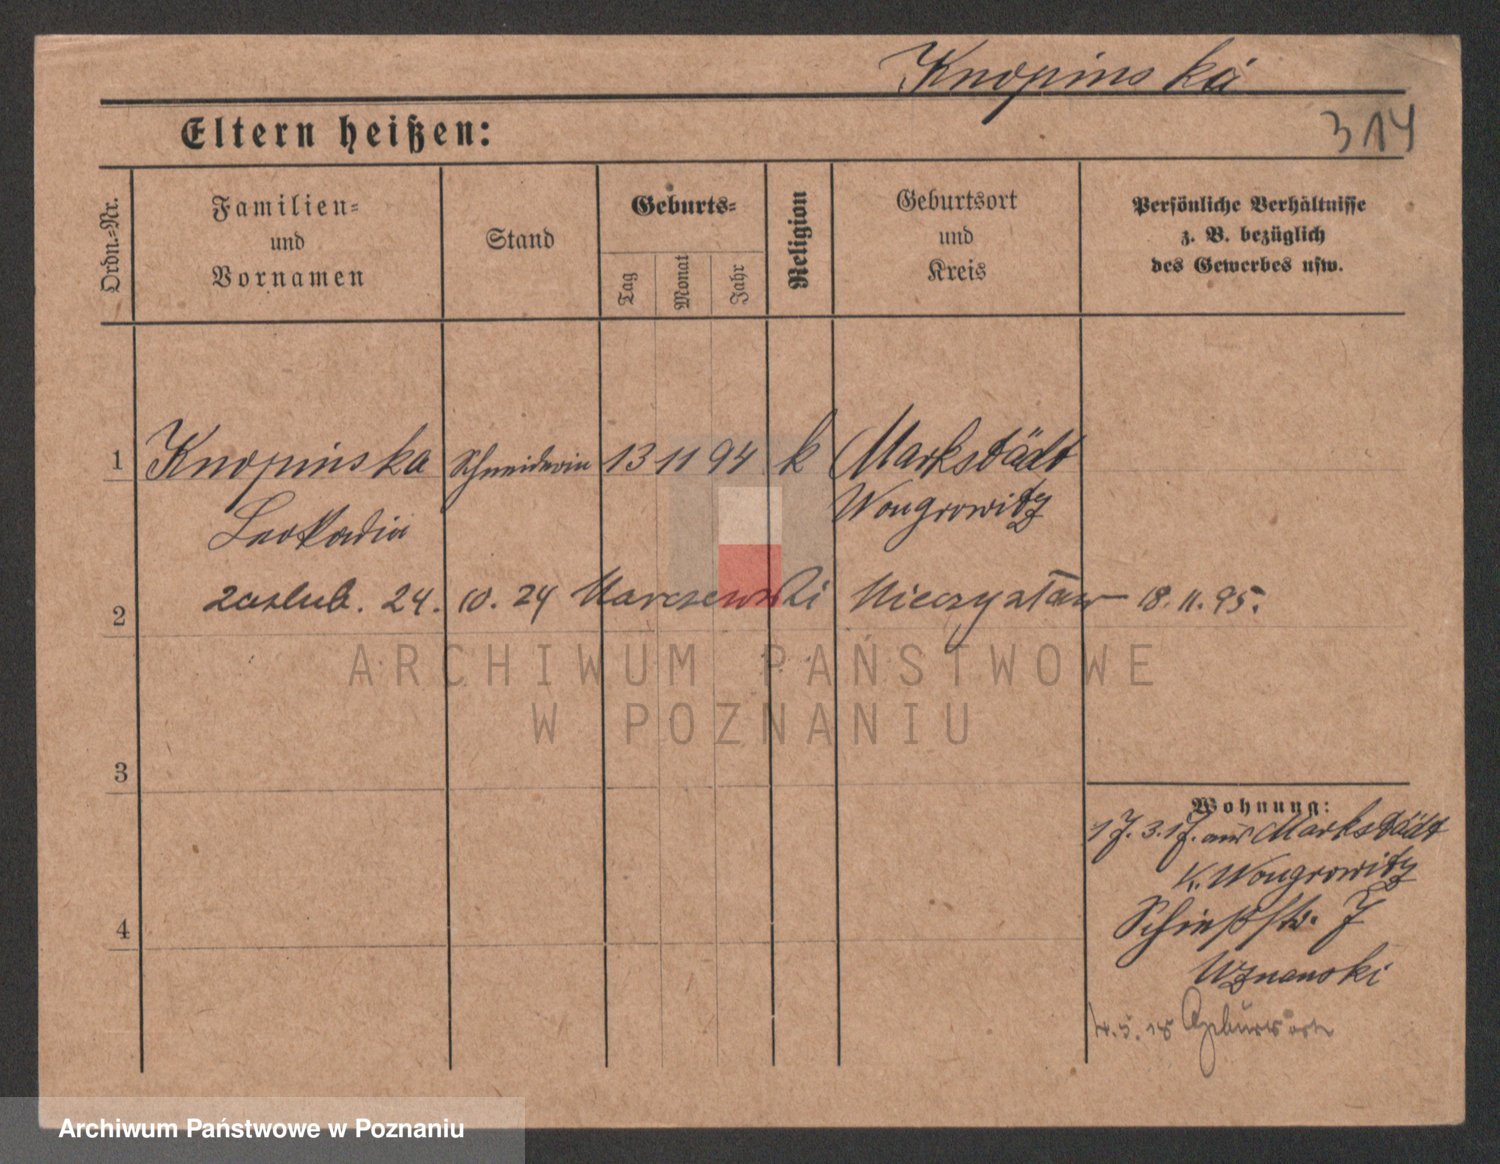 Knopinska
314
Eltern heißen:
Ordn.-Nr.
Familien-
und
Vornamen
Stand
Geburts-
Tag
Monat
Jahr
Religion
Geburtsort
und
Kreis
Persönliche Verhältnisse
z. B. bezüglich
des Gewerbes usw.
1 Knopinska Schneiderin 13 11 94 k Markstädt
Leokadia Wongrowitz
2 zaślub. 24. 10. 24 Marczewski Mieczysław 18.11.95.
ARCHIWUM PAŃSTWOWE
W POZNANIU
3
Wohnung:
17. 3. 17. aus Markstädt
K. Wongrowitz
Schießstr. 7
Uznanski
4
4. 5. 18 Geburtsort
Archiwum Państwowe w Poznaniu